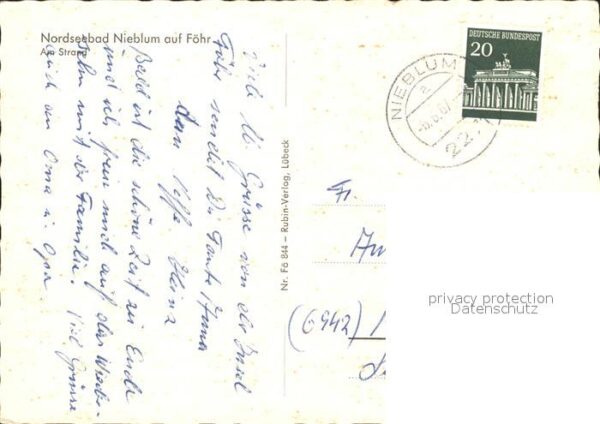 Nordseebad Nieblum auf Föhr
Am Strand
Viele lb. Grüsse von der Insel
Föhr sendet Dir Tante Anna
Onkel Heinz
Bald ist die schöne Zeit zu Ende
und ich freue mich auf das Wieder-
sehn mit der Familie. Viel Grüsse
auch an Oma u. Opa.
Nr. Fö 844 — Rubin-Verlag, Lübeck
DEUTSCHE BUNDESPOST
20
NIEBLUM
a
22
Fr.
(6942)
privacy protection
Datenschutz